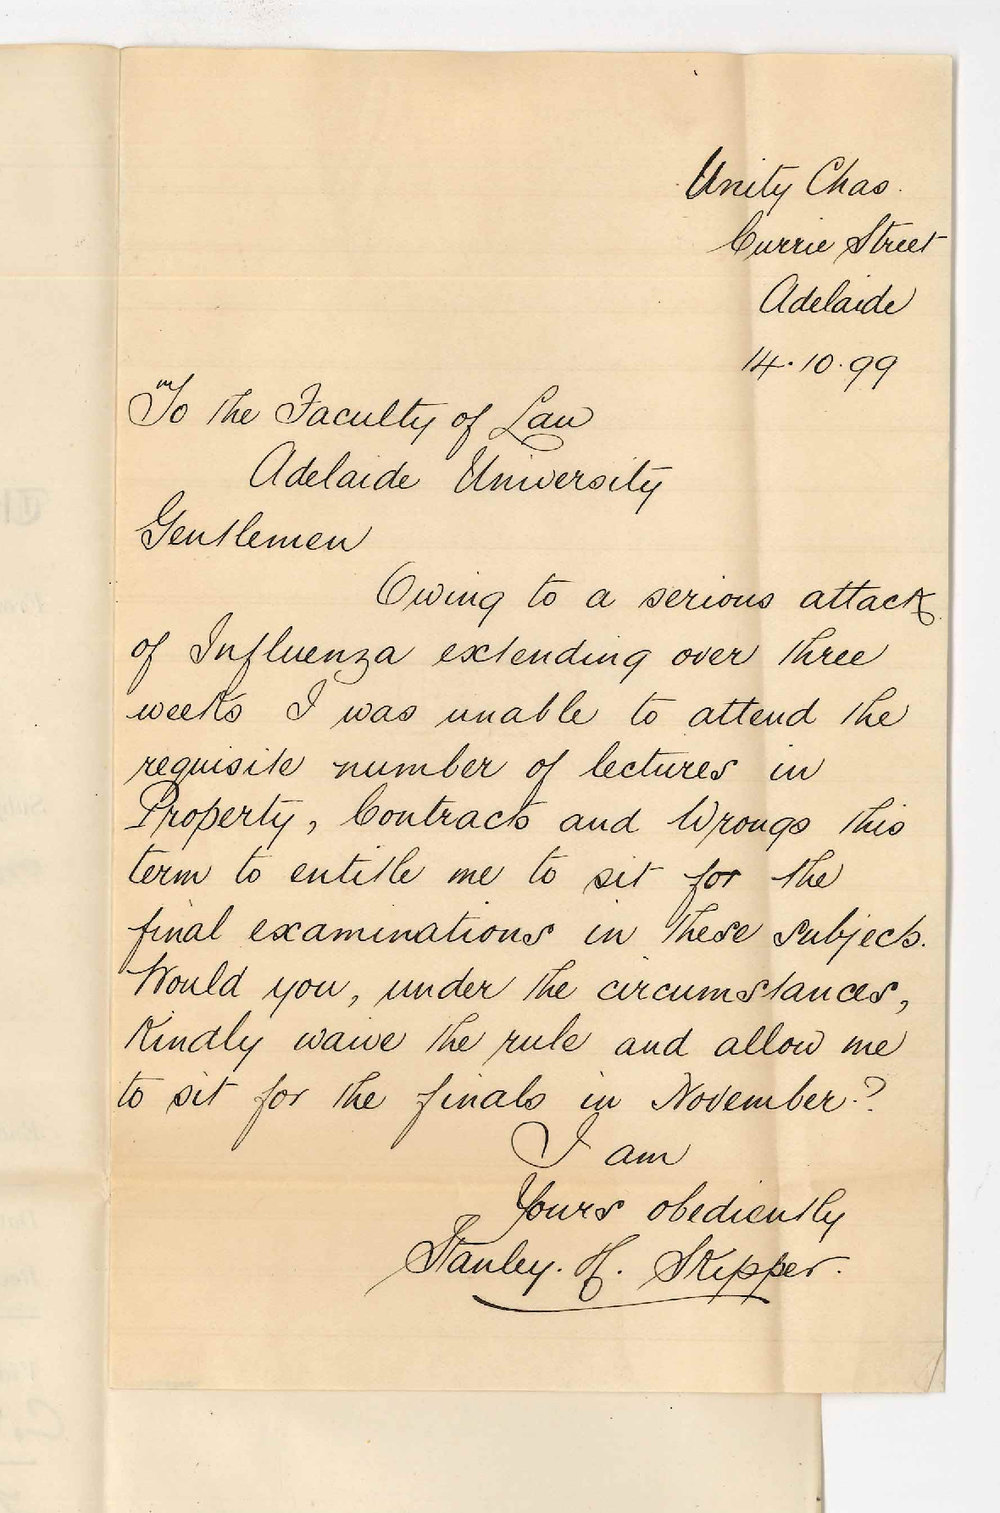 Unity Chas.
Currie Street
Adelaide
14.10.99
To the Faculty of Law
Adelaide University
Gentlemen
Owing to a serious attack
of Influenza extending over three
weeks I was unable to attend the
requisite number of lectures in
Property, Contracts and Wrongs this
term to entitle me to sit for the
final examinations in these subjects.
Would you, under the circumstances,
kindly waive the rule and allow me
to sit for the finals in November?
I am
Yours obediently
Stanley. H. Skipper.